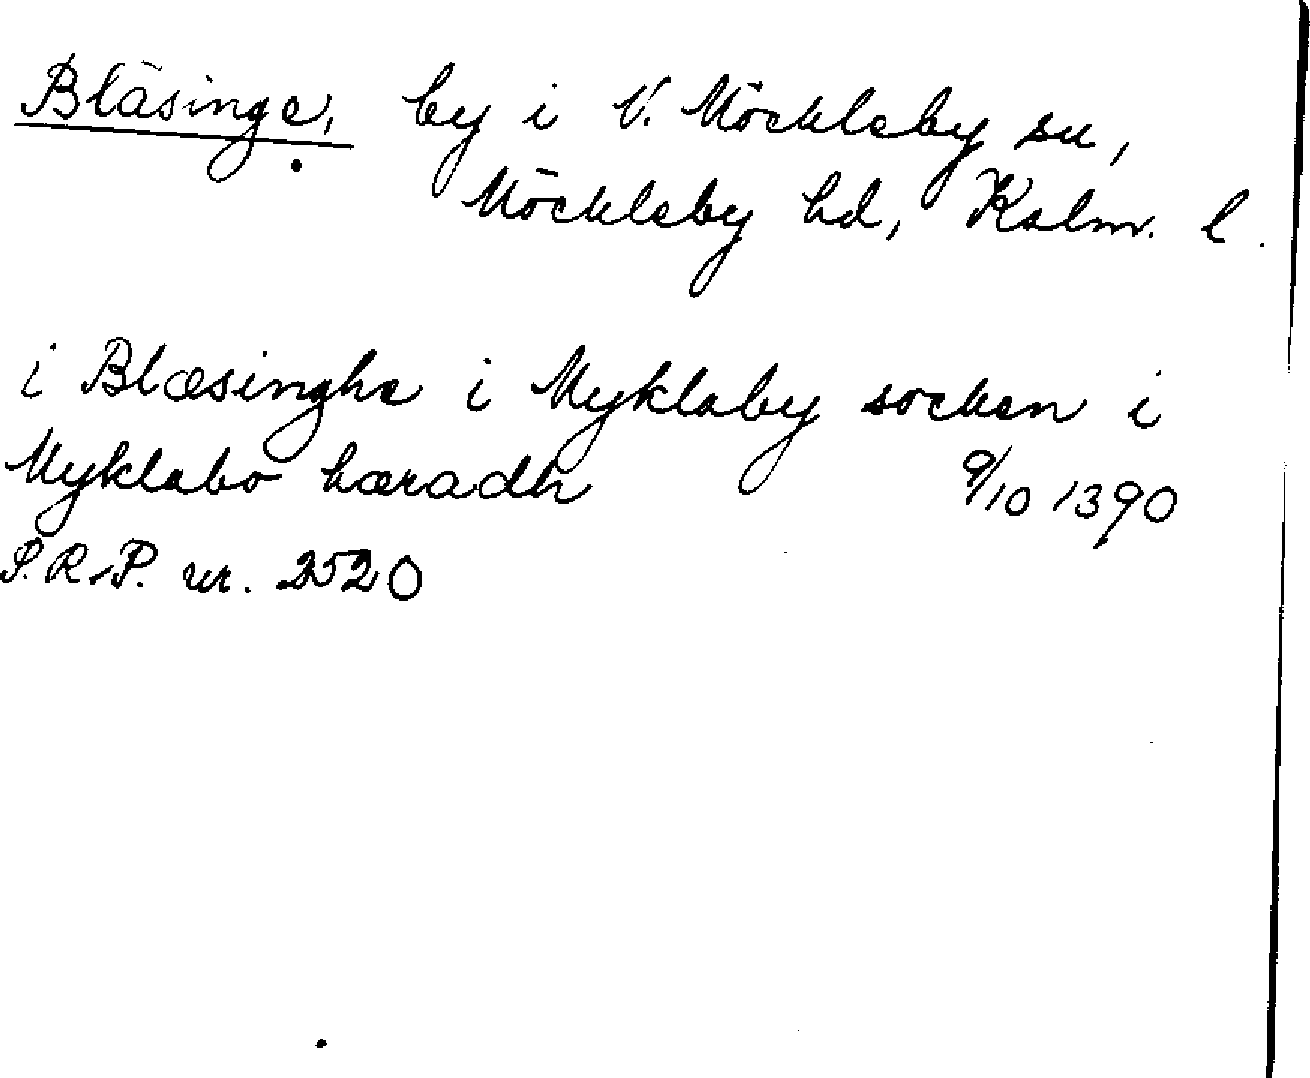 Bläsinge, by i V. Möckleby sn,
Möckleby hd, Kalm. l.
i Blæsinghe i Myklaby socken i
Myklabo hæradh 9/10 1390
S.R.P. nr. 2520